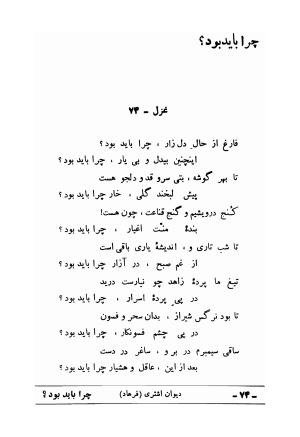 چرا باید بود؟
غزل - ۷۴
فارغ از حال دل زار ، چرا باید بود؟
اینچنین بیدل و بی یار ، چرا باید بود؟
تا بهر گوشه ، بتی سرو قد و دلجو هست
پیش لبخند گلی ، خار چرا باید بود؟
کنج درویشیم و گنج قناعت ، چون هست!
بندهٔ منّت اغیار ، چرا باید بود؟
تا شب تاری و ، اندیشهٔ یاری باقی است
از غم صبح ، در آزار چرا باید بود؟
تیغ ما پردهٔ زاهد چو نیارست درید
در پی پردهٔ اسرار ، چرا باید بود؟
تا بود نرگس شیراز ، بدان سحر و فسون
در پی چشم فسونکار ، چرا باید بود؟
ساقی سیمبرم در بر و ، ساغر در دست
بعد از این ، عاقل و هشیار چرا باید بود؟
چرا باید بود ؟
دیوان اشتری (فرهاد)
- ۷۴ -